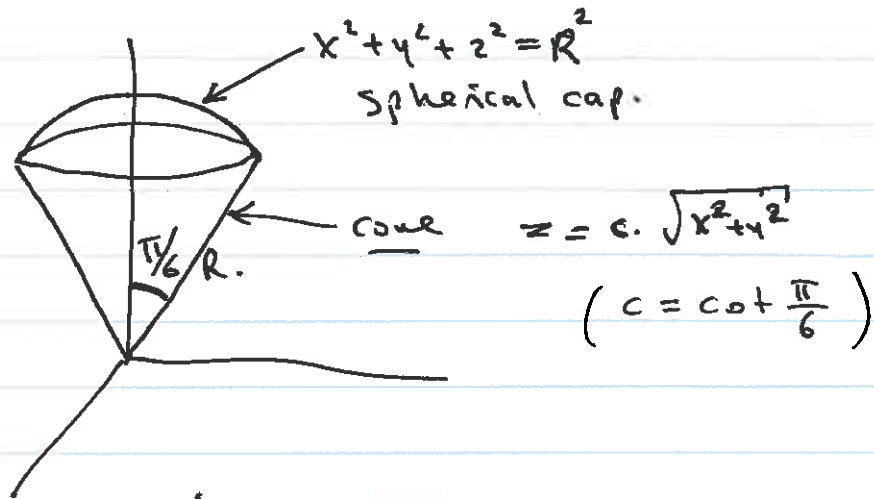 x² + y² + z² = R²
spherical cap.
cone z = c. √(x² + y²)
π/6 R.
( c = cot π/6 )